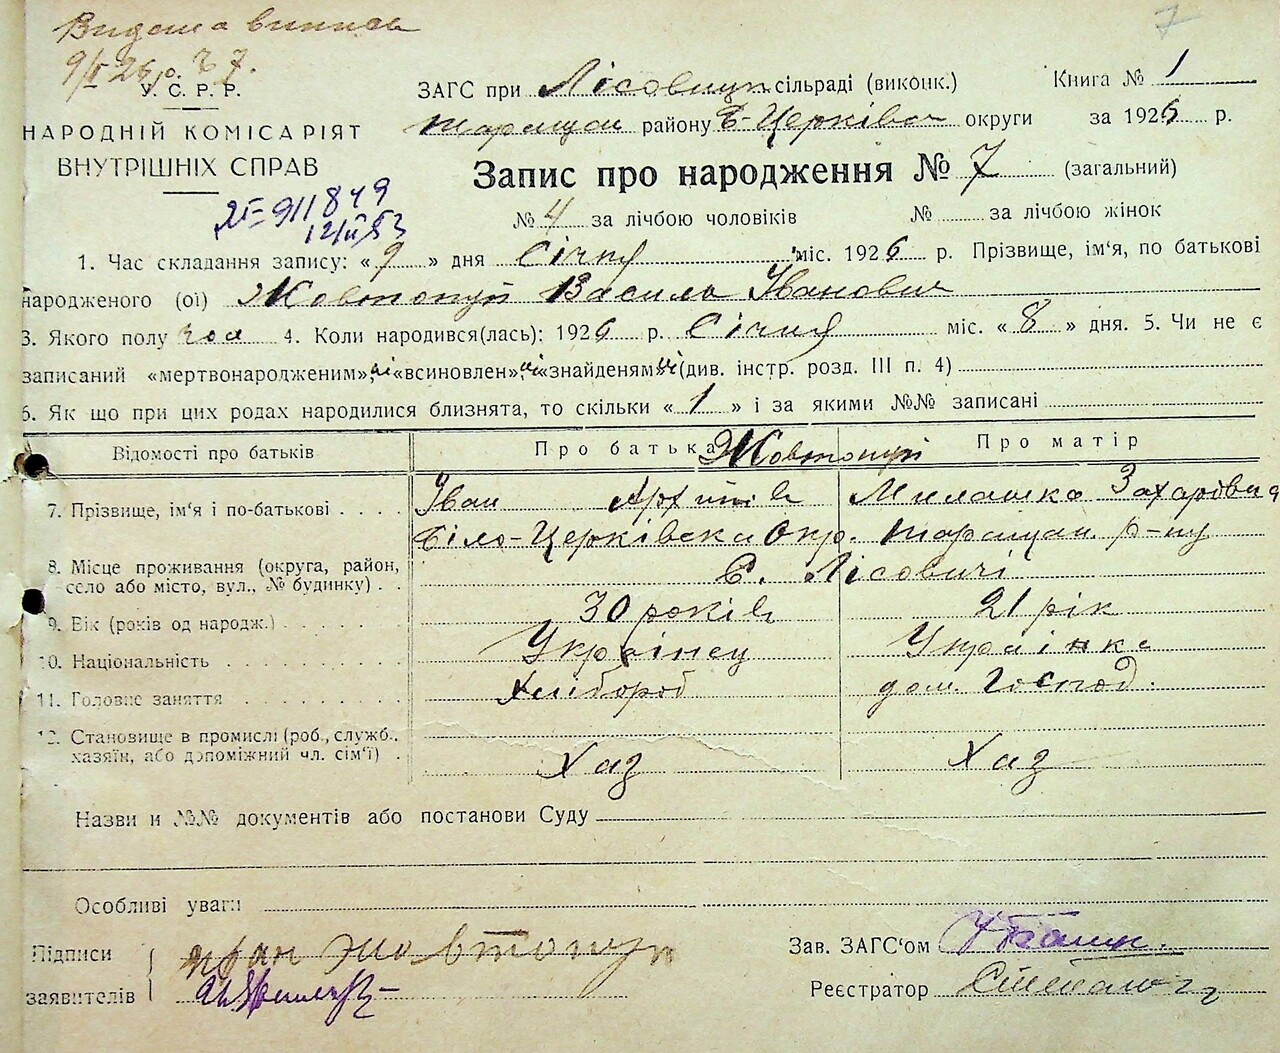 7
Видана випись
9/II 26 р. № 7.
У. С. Р. Р.
НАРОДНІЙ КОМІСАРІЯТ
ВНУТРІШНІХ СПРАВ
ЗАГС при Лісовицк сільраді (виконк.) Книга № 1
Таращан району Б-Церківськ округи за 1926 р.
Запис про народження № 7 (загальний)
911849
№ 4 за лічбою чоловіків № за лічбою жінок
1. Час складання запису: « 9 » дня Січня міс. 1926 р. Прізвище, ім'я, по батькові
народженого (ої) Жовтопуп Василь Іванович
3. Якого полу чол 4. Коли народився(лась): 1926 р. Січня міс. « 8 » дня. 5. Чи не є
записаний «мертвонародженим», ні «всиновлен», ні «знайденям» ні (див. інстр. розд. III п. 4)
6. Як що при цих родах народилися близнята, то скільки « 1 » і за якими №№ записані
Відомості про батьків Про батька Про матір
Жовтопуп
7. Прізвище, ім'я і по-батькові Іван Милашка Захарівна
Біло-Церківська Окр. Таращан р-ну
8. Місце проживання (округа, район,
село або місто, вул., № будинку) С. Лісовичі
9. Вік (років од народж.) 30 років 21 рік
10. Національність Українец Українка
11. Головне заняття Хлібороб дом. Господ.
12. Становище в промислі (роб., служб.,
хазяїн, або допоміжний чл. сім'ї) Хаз Хаз
Назви и №№ документів або постанови Суду
Особливі уваги
Підписи Іван Жовтопуп Зав. ЗАГС'ом
заявителів Реєстратор